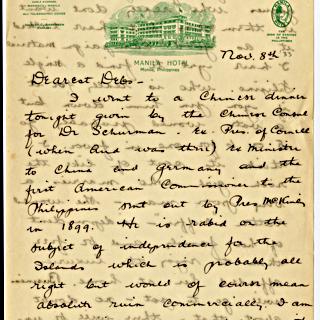 MANILA HOTEL
Manila, Philippines
Nov. 8th
Dearest Debs -
I went to a Chinese dinner
tonight given by the Chinese Consul
for Dr Schurman ex Pres. of Cornell
(when Aud was there) ex Minister
to China and Germany and the
first American Commissioner to the
Philippines sent out by Pres McKinley
in 1899. He is rabid on the
subject of independence for the
Islands which is probably all
right but would of course mean
absolute ruin commercially. I am